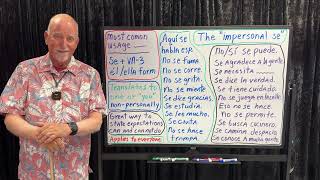 Most common
usage
Se + VA-3
él/ella form
Translates to
"one" or "you"
non-personally
Great way to
state expectations
can and can not do
Applies to everyone
Aquí se
habla esp.
No se fuma.
No se corre.
No se grita.
No se miente
Se dice gracias.
Se estudia.
Se lee mucho.
Se invita
No se hace
trampa.
The "impersonal se"
No/Sí se puede.
Se agradece a la gente.
Se necesita
Se dice la verdad.
Se tiene cuidado.
No se juega en la calle
Eso no se hace
No se permite.
Se busca cocinero.
Se camina despacio
Se conoce a mucha gente